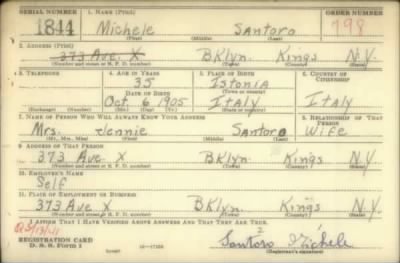 SERIAL NUMBER 1. NAME (Print) ORDER NUMBER
1844 Michele Santoro 798
(First) (Middle) (Last)
2. ADDRESS (Print)
373 Ave. X BKlyn. Kings N.Y.
(Number and street or R. F. D. number) (Town) (County) (State)
3. TELEPHONE 4. AGE IN YEARS 5. PLACE OF BIRTH 6. COUNTRY OF CITIZENSHIP
35 Istonia
(Town or county)
DATE OF BIRTH
Oct. 6 1905 Italy Italy
(Exchange) (Number) (Mo.) (Day) (Yr.) (State or country)
7. NAME OF PERSON WHO WILL ALWAYS KNOW YOUR ADDRESS 8. RELATIONSHIP OF THAT PERSON
Mrs. Jennie Santoro Wife
(Mr., Mrs., Miss) (First) (Middle) (Last)
9. ADDRESS OF THAT PERSON
373 Ave X BKlyn Kings N.Y.
(Number and street or R. F. D. number) (Town) (County) (State)
10. EMPLOYER'S NAME
Self
11. PLACE OF EMPLOYMENT OR BUSINESS
373 Ave X BKlyn Kings N.Y.
(Number and street or R. F. D. number) (Town) (County) (State)
I AFFIRM THAT I HAVE VERIFIED ABOVE ANSWERS AND THAT THEY ARE TRUE.
REGISTRATION CARD
D. S. S. FORM 1 16—17105 Santoro Michele
(Registrant's signature)